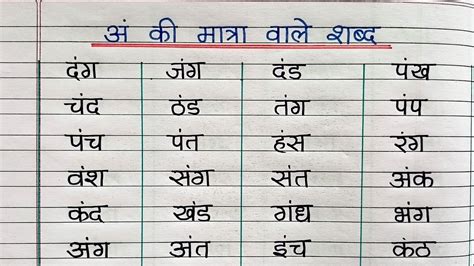 अं की मात्रा वाले शब्द
दंग जंग दंड पंख
चंद ठंड तंग पंप
पंच पंत हंस रंग
वंश संग संत अंक
कंद खंड गंध भंग
अंग अंत इंच कंठ